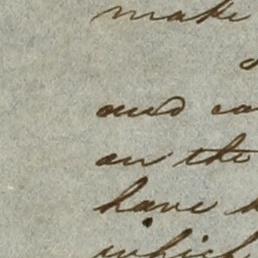 make
and ca
on the
have
which